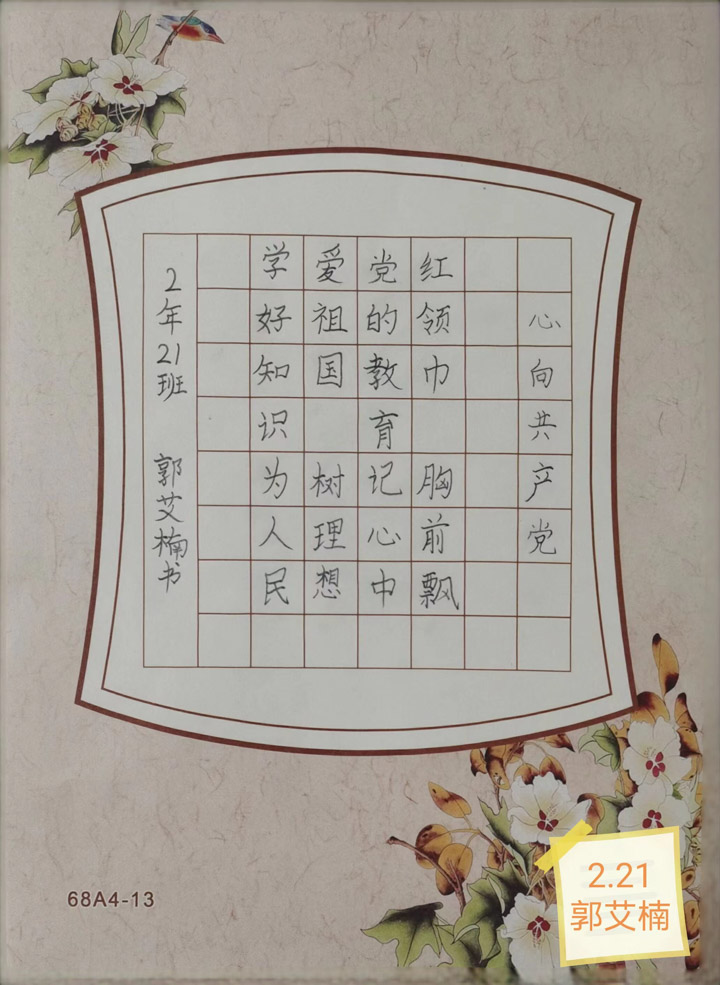 心向共产党
红领巾 胸前飘
党的教育 记心中
爱祖国 树理想
学好知识 为人民
2年21班 郭艾楠书
68A4-13
2.21
郭艾楠